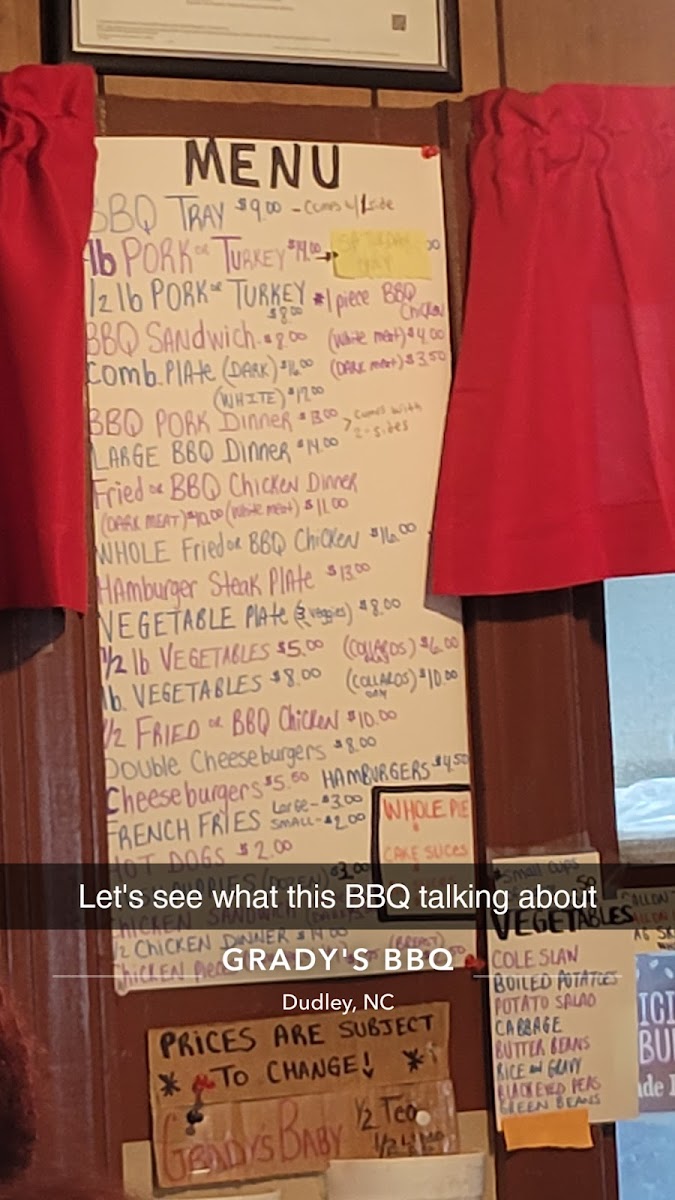 MENU
BBQ TRAY $9.00 - comes w/1 side
1lb PORK or TURKEY $14.00
SATURDAY ONLY
1/2 lb PORK or TURKEY $8.00
1 piece BBQ Chicken
BBQ SANDwich $8.00 (White meat) $4.00
Comb. Plate (DARK) $16.00 (DARK meat) $3.50
(WHITE) $17.00
BBQ PORK Dinner $13.00 > comes with 2-sides
LARGE BBQ Dinner $14.00
Fried or BBQ Chicken Dinner
(DARK MEAT) $10.00 (White meat) $11.00
WHOLE Fried or BBQ Chicken $16.00
HAmburger Steak Plate $13.00
VEGETABLE Plate (3 veggies) $8.00
1/2 lb. VEGETABLES $5.00 (COLLARDS) $6.00
lb. VEGETABLES $8.00 (COLLARDS) $10.00
1/2 FRIED or BBQ Chicken $10.00
Double Cheeseburgers $8.00
Cheeseburgers $5.50 HAMBURGERS $4.50
FRENCH FRIES Large-$3.00
SMALL-$2.00
HOT DOGS $2.00
WHOLE PIE
CAKE SLICES
Let's see what this BBQ talking about
CHICKEN SANDWICH
1/2 CHICKEN DINNER $14.00
GRADY'S BBQ
Dudley, NC
Chicken
(BREAST)
*Small cups
VEGETABLES
COLE SLAW
BOILED POTATOES
POTATO SALAD
CABBAGE
BUTTER BEANS
RICE and GRAVY
BLACKEYED PEAS
GREEN BEANS
PRICES ARE SUBJECT
* TO CHANGE! *
GRADY'S BABY
1/2 Tea